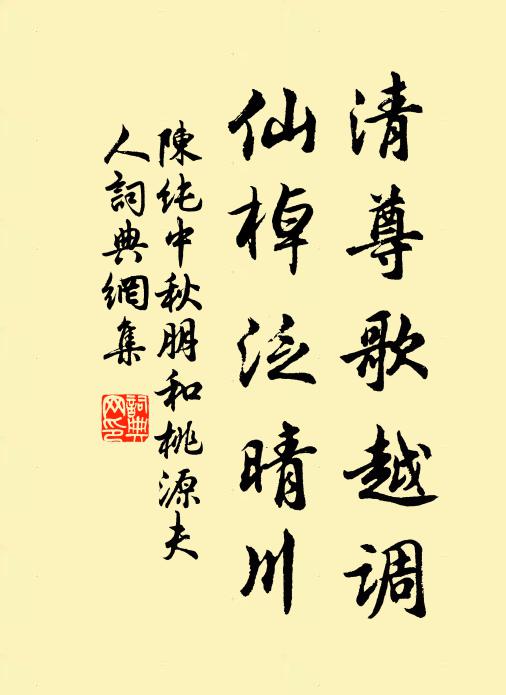 清尊歌越调
仙棹泛晴川
陳纯中秋朋和桃源夫
人詞典網集
詞典网印